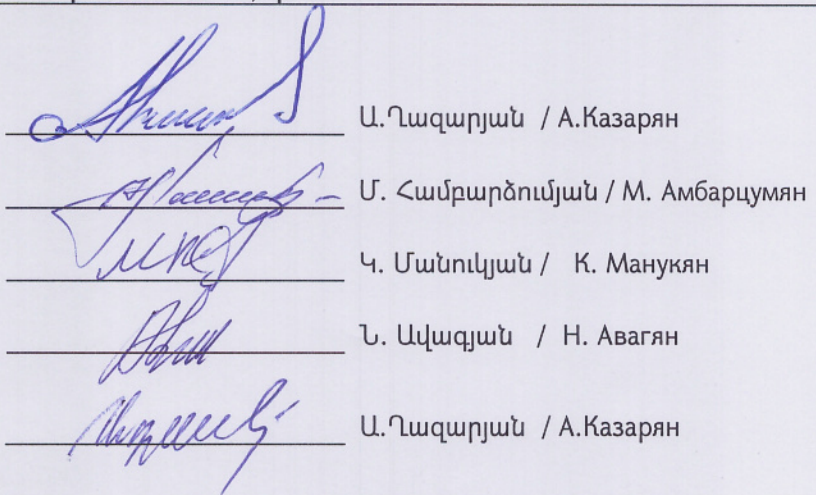 Ա.Ղազարյան / А.Казарян
Մ. Համբարձումյան / М. Амбарцумян
Կ. Մանուկյան / К. Манукян
Ն. Ավագյան / Н. Авагян
Ա.Ղազարյան / А.Казарян